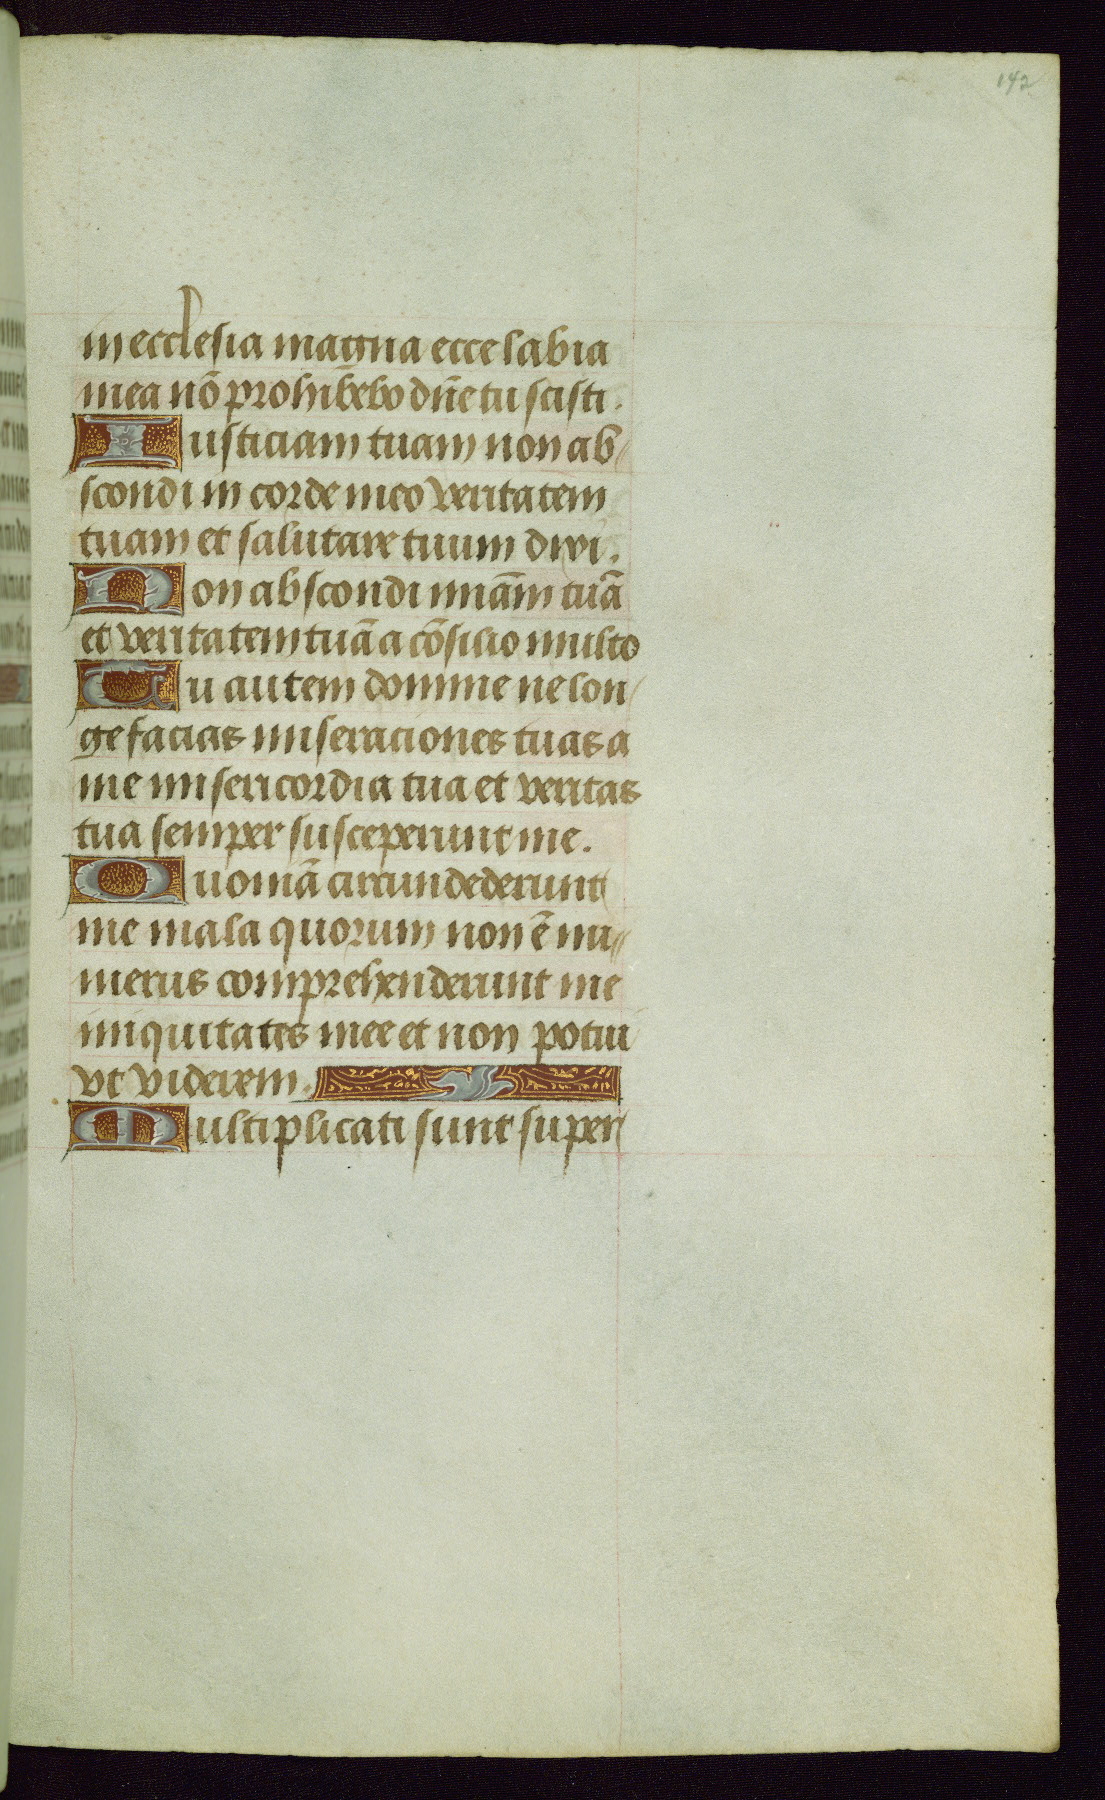 142
in ecclesia magna ecce labia
mea nō prohibebo dn̄e tu scisti.
Iusticiam tuam non ab
scondi in corde meo veritatem
tuam et salutare tuum dixi.
Non abscondi miām tuā
et veritatem tuā a cōsilio multo
Tu autem domine ne lon
ge facias miseraciones tuas a
me misericordia tua et veritas
tua semper susceperunt me.
Quoniā circundederunt
me mala quorum non ē nu
merus comprehenderunt me
iniquitates mee et non potui
vt viderem.
Multiplicati sunt super